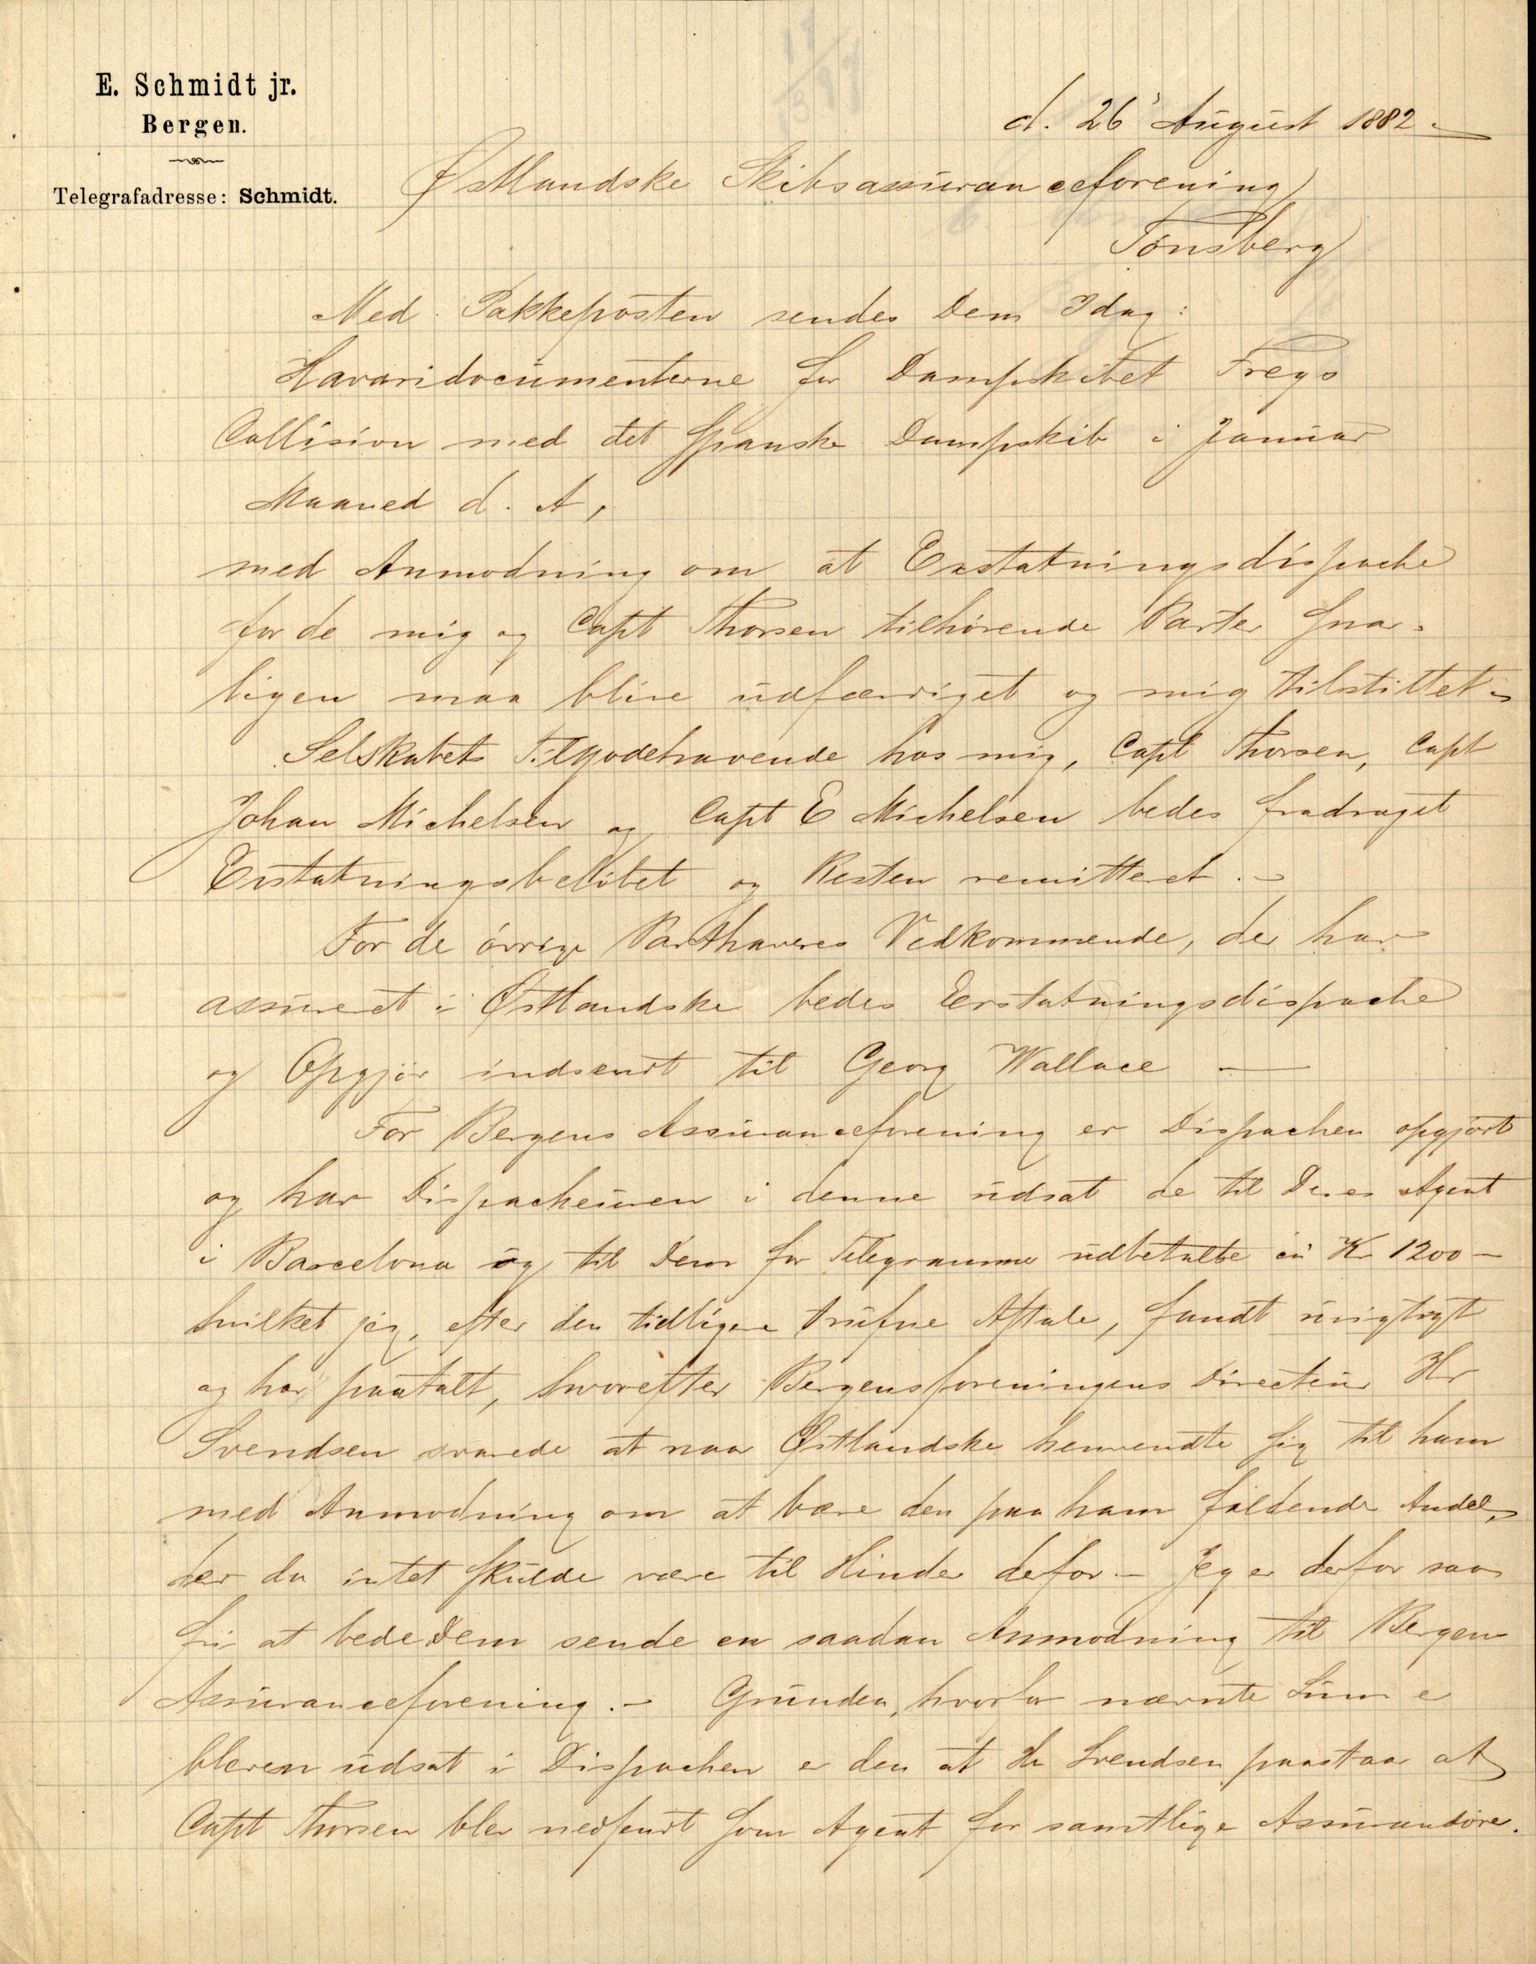 E. Schmidt jr.
Bergen.
Telegrafadresse: Schmidt.
d. 26' August 1882.
Østlandske Skibsassuranceforening
Tønsberg
Med Pakkeposten sendes Dem Idag:
Havaridocumenterne for Dampskibet Freys
Collision med det spanske Dampskib i Januar
Maaned d. A,
med Anmodning om at Erstatningsdispache
for de mig og Capt Thorsen tilhørende Parter sna-
rligen maa blive udfærdiget og mig tilstillet.
Selskabets Tilgodehavende hos mig, Capt Thorsen, Capt
Johan Michelsen og Capt E Michelsen bedes fradraget
Erstatningsbeløbet og Resten remitteret.-
For de øvrige Parthaveres Vedkommende, der har
assureret i Østlandske bedes Erstatningsdispache
og Opgjør indsendt til Georg Wallace —
For Bergens Assuranceforening er Dispachen opgjort
og har Dispacheuren i denne udsat de til Deres Agent
i Barcelona og til Dem for Telegramme udbetalte ca Kr 1200 -
hvilket jeg, efter den tidligere trufne Aftale, fandt urigtigt
og har paatalt, hvorefter Bergensforeningens Directeur Hr
Svendsen svarede at naar Østlandske henvendte sig til ham
med Anmodning om at bære den paa ham faldende Andel,
der da intet skulde være til Hinder defor.- Jeg er derfor saa
fri at bede Dem sende en saadan Anmodning til Bergens
Assuranceforening.- Grunden, hvorfor nævnte Sum er
bleven udsat i Dispachen er den at Hr Svendsen paastaar at
Capt Thorsen blev nedsendt som Agent for samtlige Assurandøre.